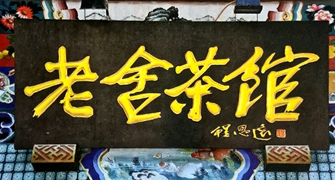 老舍茶馆
程思远